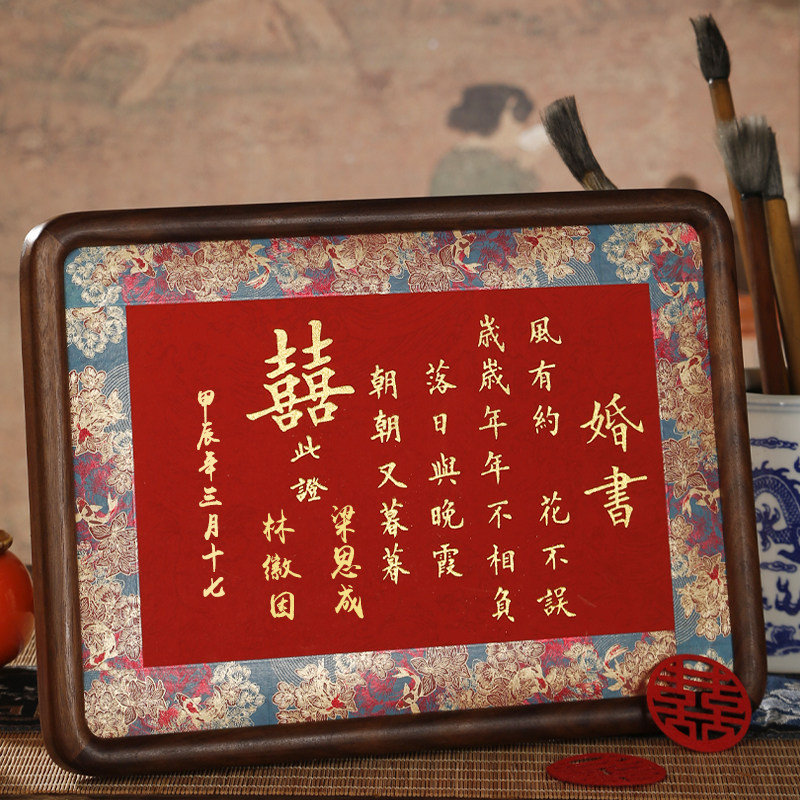 婚書
風有約 花不誤
歲歲年年不相負
落日與晚霞
朝朝又暮暮
梁思成
囍
此證
林徽因
甲辰年三月十七
囍